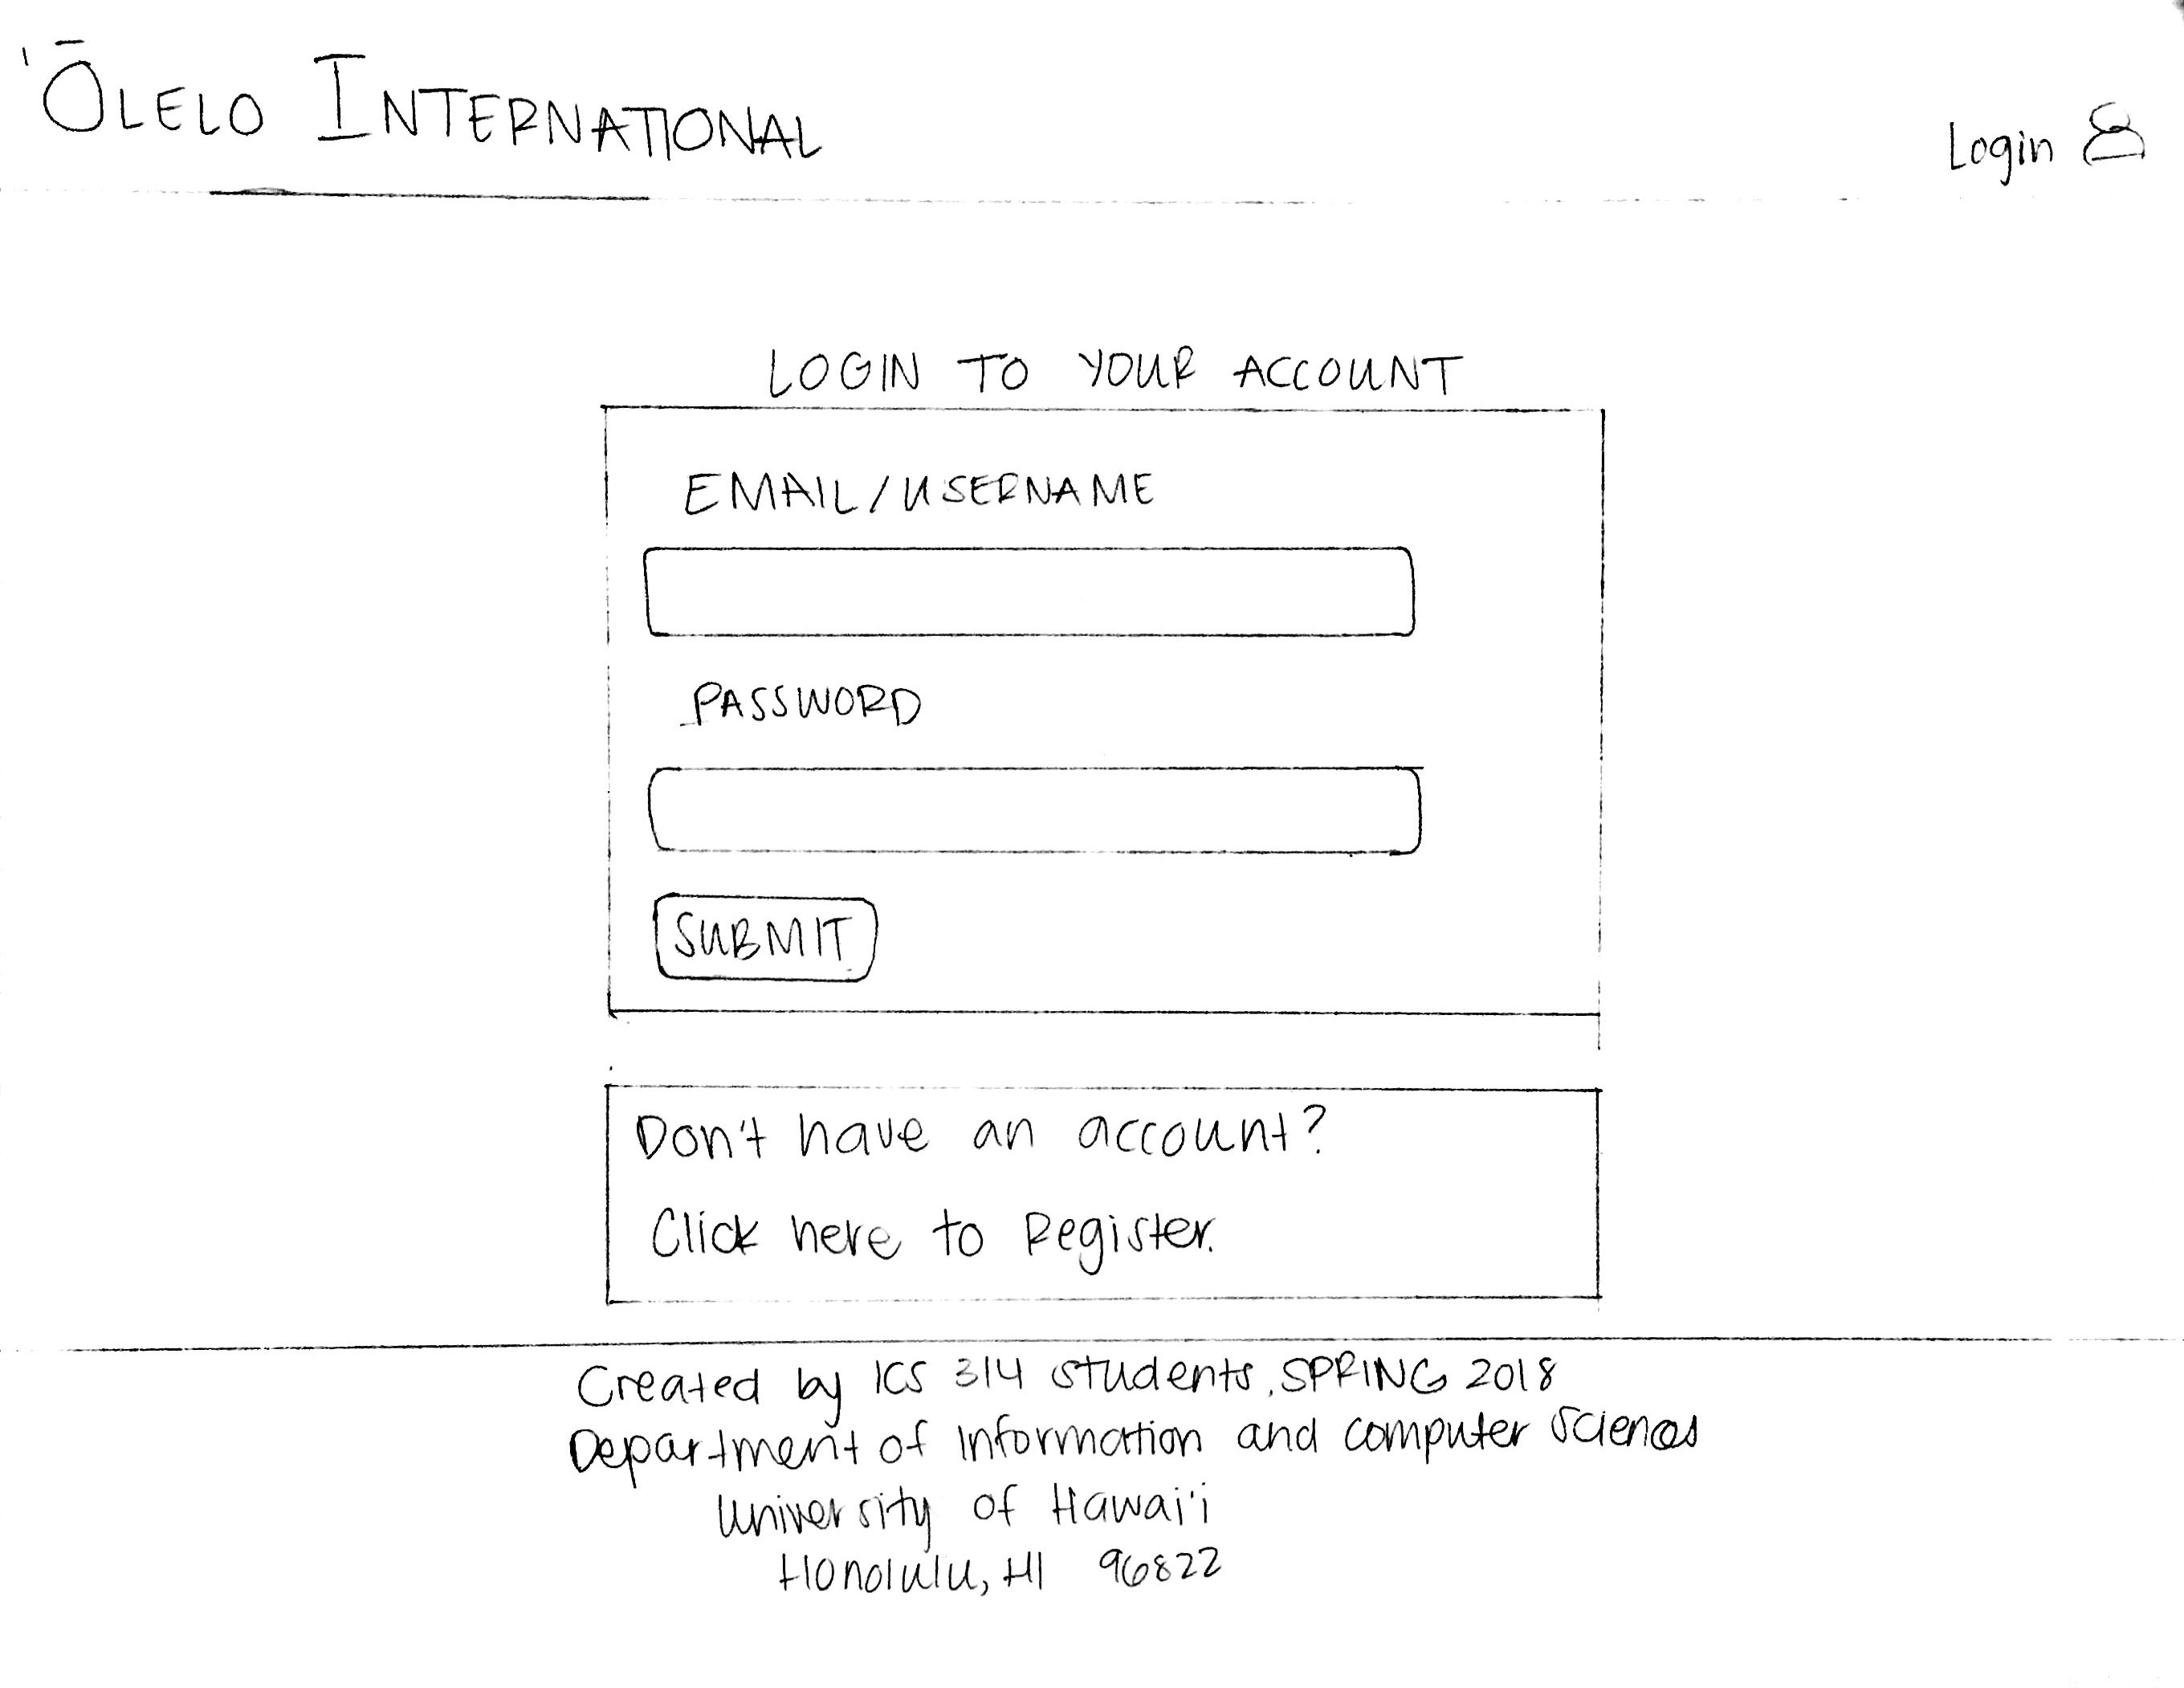 'ŌLELO INTERNATIONAL
Login
LOGIN TO YOUR ACCOUNT
EMAIL/USERNAME
PASSWORD
SUBMIT
Don't have an account?
Click here to Register.
Created by ICS 314 students, SPRING 2018
Department of Information and computer Sciences
University of Hawai'i
Honolulu, HI 96822